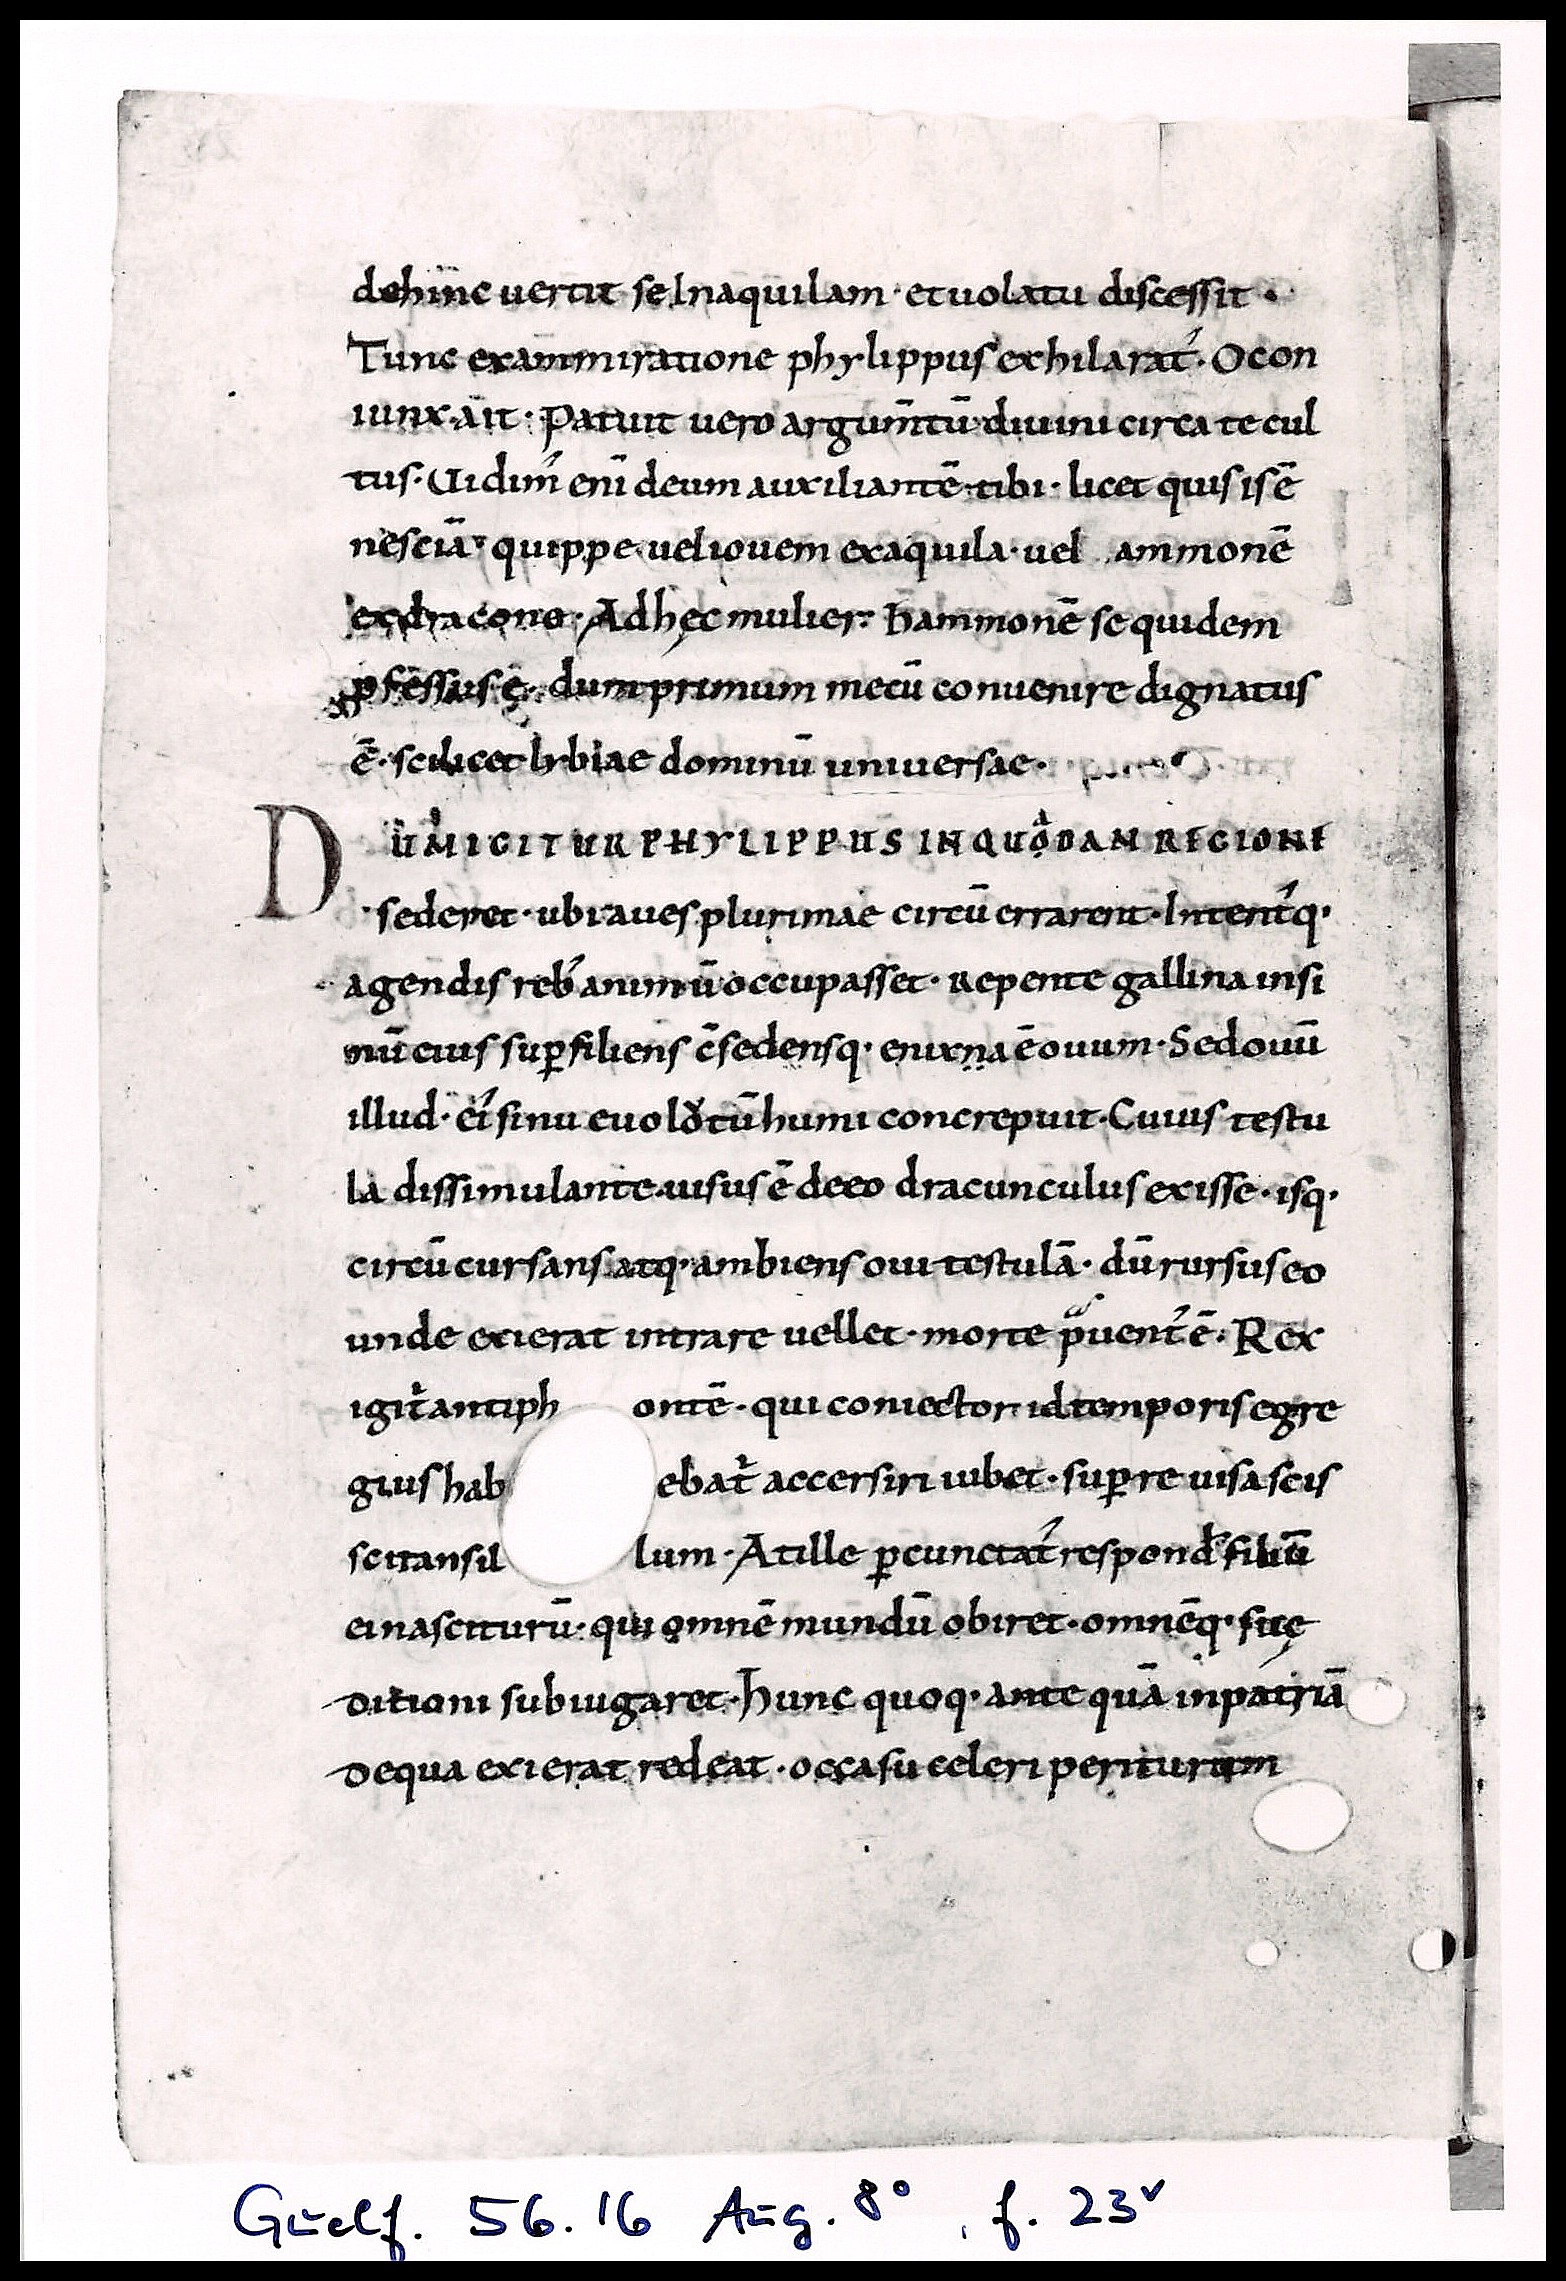 dehinc uertit se Inaquilam · etuolatu discessit ·
Tunc exammiratione phylippus exhilarat᾽ · Ocon
iunx · ait · Patuit uero argum̄tū diuini circa te cul
tus · Uidim᾽ enī deum auxiliantē tibi · licet quis is ē
nesciā᾽ quippe uel iouem exaquila · uel ammonē
exdracone · Ad hęc mulier · hammonē se quidem
ꝓfessus ē · dum primum mecū conuenire dignatus
ē · scilicet lybiae dominū uniuersae ·
DŪMIGITUR PHYLIPPUS IN QUADAM REGIONE
sederet · ubi aues plurimae circū errarent · Intent᾽q·
agendis reb᾽ animū occupasset · Repente gallina insi
nū eius suꝑ siliens c̄sedensq· enixna ē ouum · Sed ouū
illud · ei᾽ sinu euolotū humi concrepuit · Cuius testu
la dissimulante · uisus ē deeo dracunculus exisse · isq·
circū cursans atq· ambiens oui testulā · dū rursus eo
unde exierat intrare uellet · morte p̄uent᾽ ē · Rex
igit᾽ antiph ontē · qui coniector id temporis egre
gius hab ebat᾽ accersiri iubet · suꝑ re uisa scis
scitans il lum · At ille ꝑcunctat᾽ respond᾽ filiū
ei nasciturū · qui omnē mundū obiret · omnēq· suę
ditioni subiugaret · Hunc quoq· ante quā inpatriā
dequa exierat redeat · occasu celeri periturum
Guelf. 56.16 Aug. 8°, f. 23ᵛ